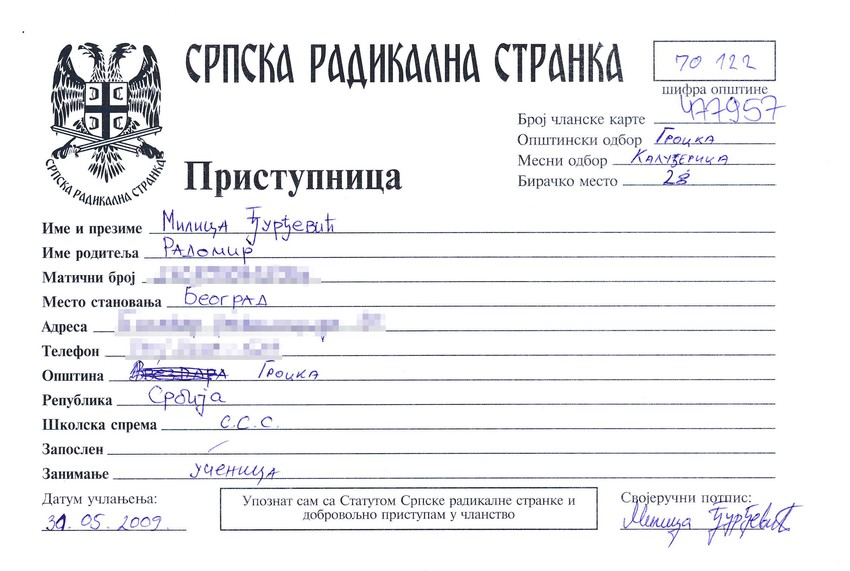 СРПСКА РАДИКАЛНА СТРАНКА
70 122
шифра општине
Број чланске карте 477957
Општински одбор Гроцка
Месни одбор Калуђерица
Бирачко место 28
СРПСКА РАДИКАЛНА СТРАНКА
Приступница
Име и презиме Милица Ђурђевић
Име родитеља Радомир
Матични број
Место становања Београд
Адреса
Телефон
Општина Гроцка
Република Србија
Школска спрема С.С.С.
Запослен
Занимање ученица
Датум учлањења:
30.05.2009.
Упознат сам са Статутом Српске радикалне странке и
добровољно приступам у чланство
Својеручни потпис:
Милица Ђурђевић